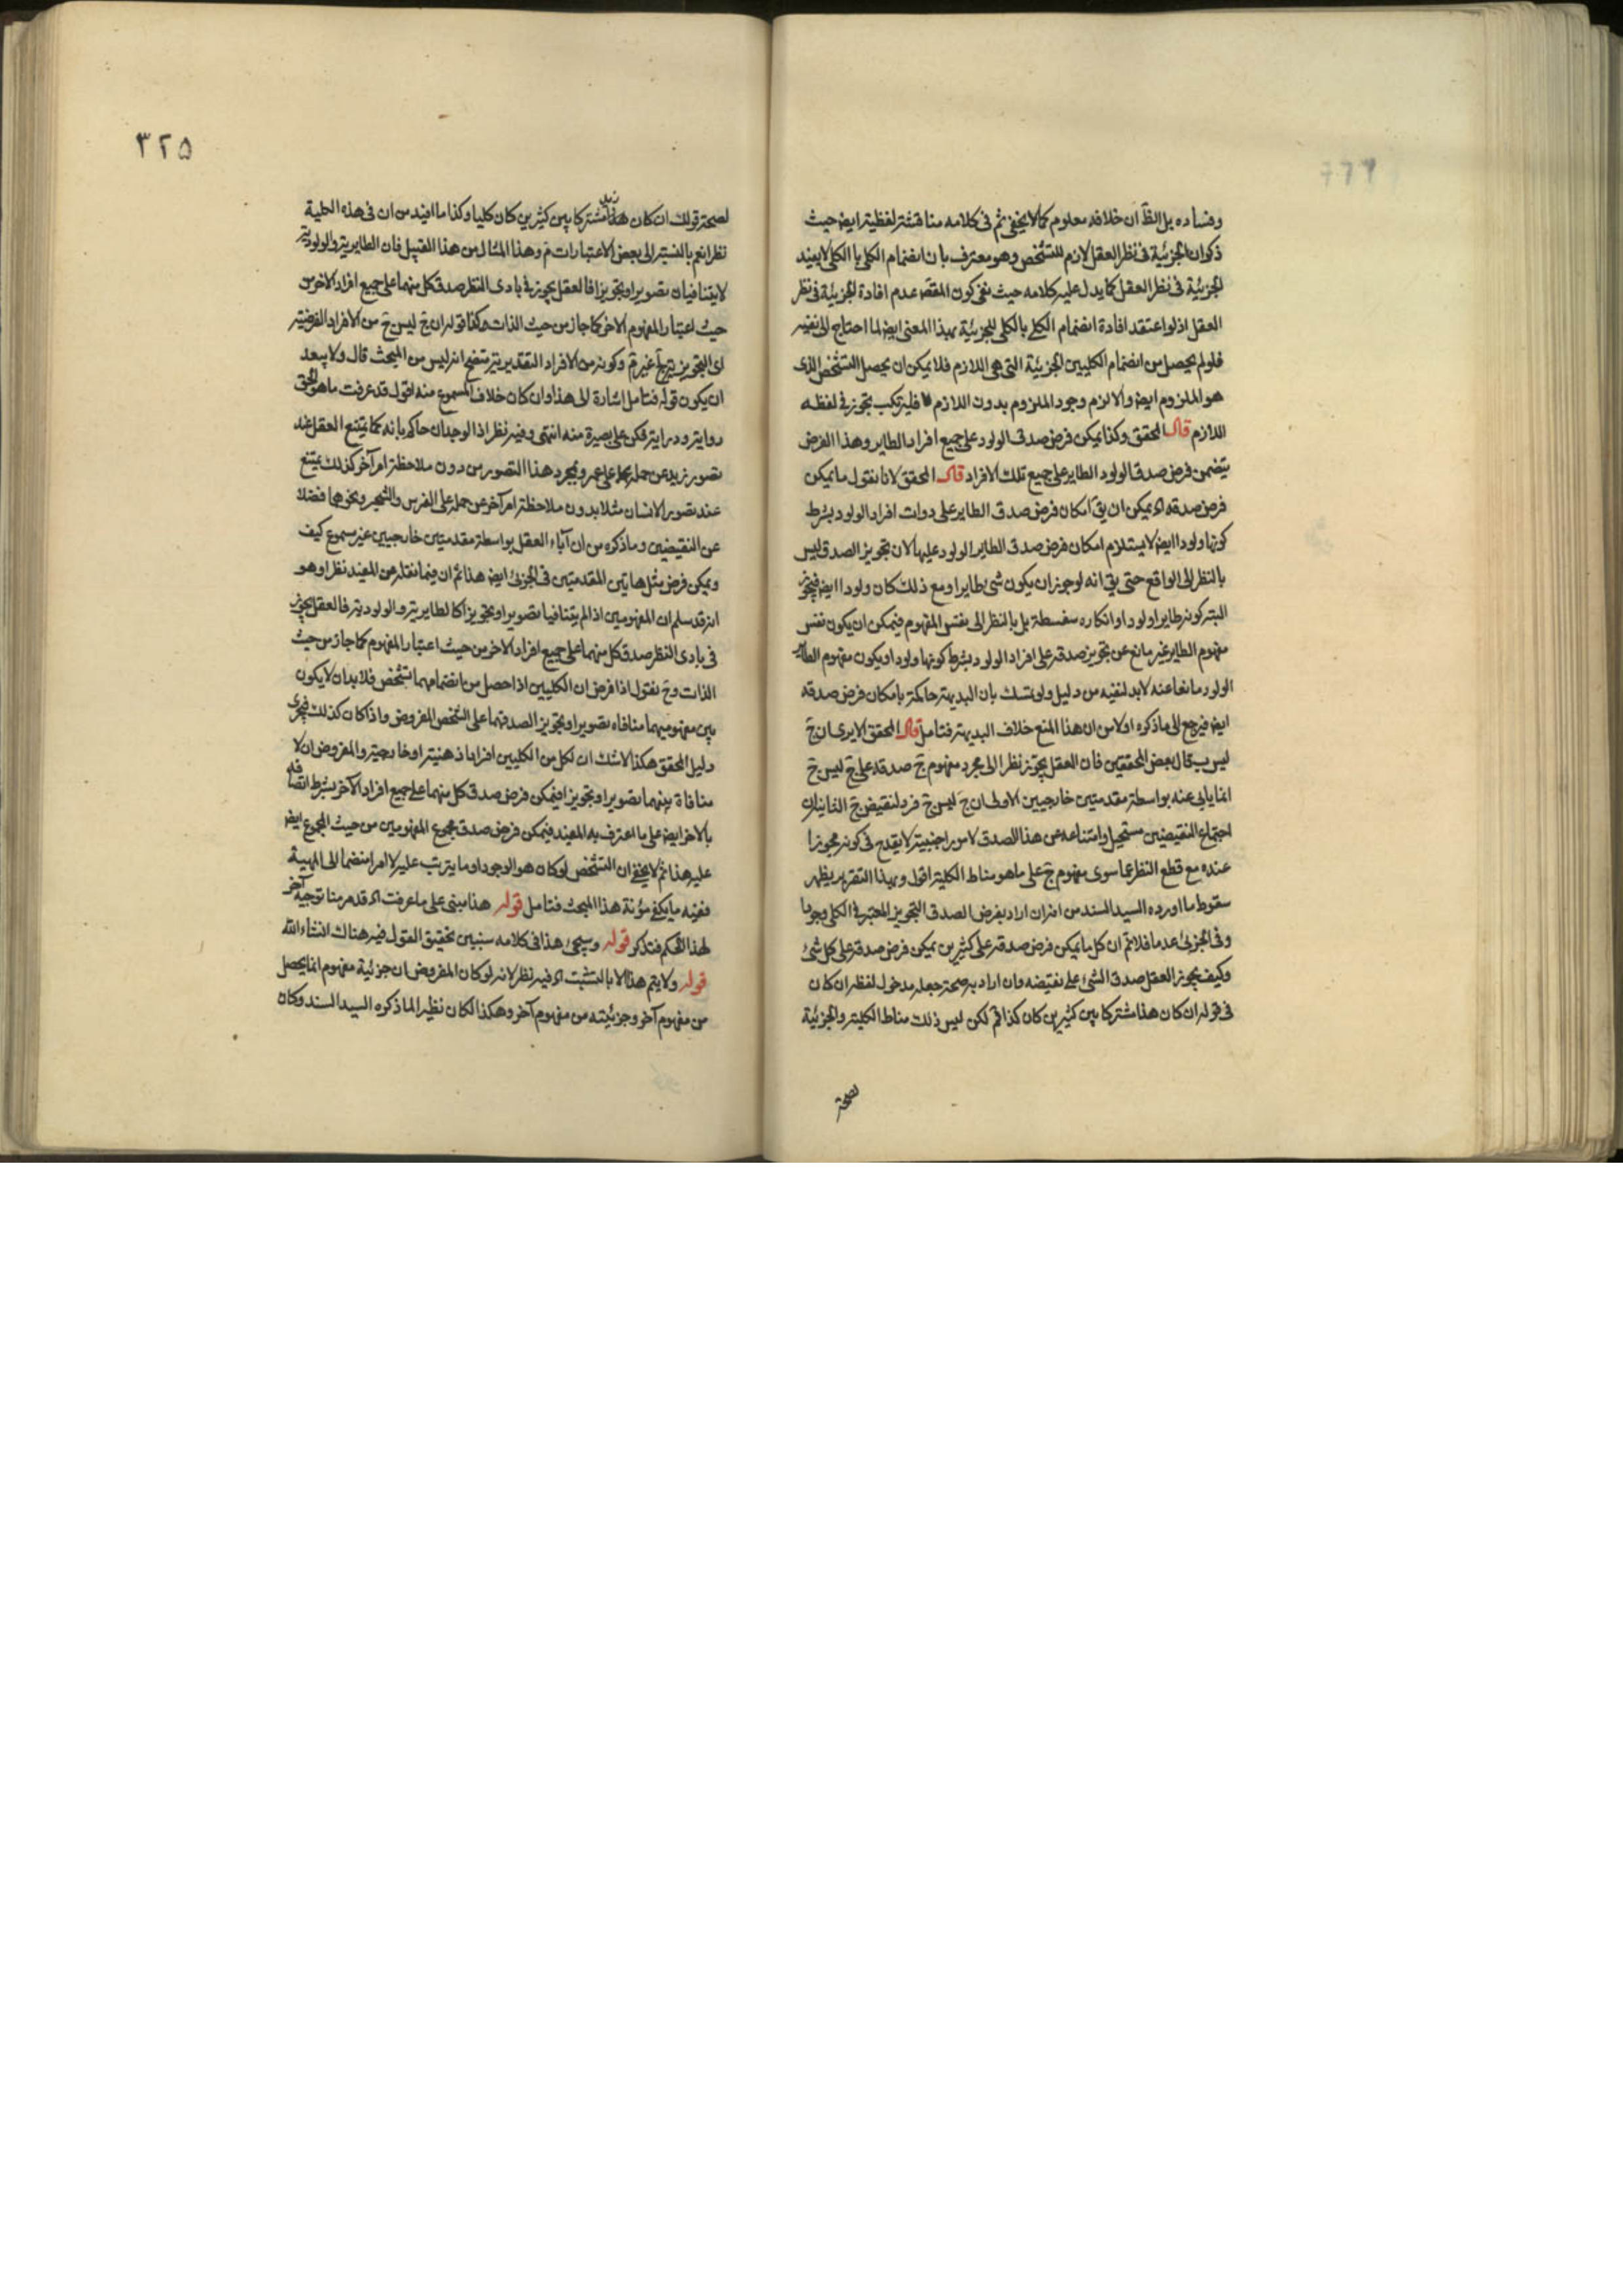 وفساده بل الظ ان خلافه معلوم كما لا يخفى ثم فى كلامه مناقشة لفظية ايض حيث
ذكر ان الجزئية فى نظر العقل لازم للتشخص وهو معترف بان انضمام الكلى بالكلى لا يفيد
الجزئية فى نظر العقل كما يدل عليه كلامه حيث نفى كون المقصد عدم افادة الجزئية فى نظر
العقل اذ لو اعتقد افادة انضمام الكلى بالكلى للجزئية بهذا المعنى ايضا لما احتاج الى نفيه
فلو لم يحصل من انضمام الكليين الجزئية التى هى اللازم فلا يمكن ان يحصل التشخص الذى
هو الملزوم ايض والا لزم وجود الملزوم بدون اللازم فليرتكب تجوز فى لفظه
اللازم قال المحقق وكذا يمكن فرض صدق الولود على جميع افراد الطاير وهذا الفرض
يتضمن فرض صدق الولود الطاير على جميع تلك الافراد قال المحقق لانا نقول ما يمكن
فرض صدقه اه يمكن ان يق امكان فرض صدق الطاير على ذوات افراد الولود بشرط
كونها ولودا ايض لا يستلزم امكان فرض صدق الطاير الولود عليها لان تجويز الصدق ليس
بالنظر الى الواقع حتى يق انه لو جوز ان يكون شئ طايرا ومع ذلك كان ولودا ايض فيجوز
البتة كونه طايرا ولودا وانكاره سفسطة بل بالنظر الى نفس المفهوم فيمكن ان يكون نفس
مفهوم الطاير غير مانع عن تجويز صدقه على افراد الولود بشرط كونها ولودا ويكون مفهوم الطاير
الولود مانعا عنه لا بد لنفيه من دليل ولو تمسك بان البديهة حاكمة بامكان فرض صدقه
ايض فيرجع الى ما ذكره اولا من ان هذا المنع خلاف البديهة فتامل قال المحقق الا يرى ان ج
ليس ب قال بعض المحققين فان العقل يجوز نظرا الى مجرد مفهوم ج صدقه على ج ليس ج
انما يابى عنه بواسطة مقدمتين خارجيين الاولى ان ج ليس ج فرد لنقيض ج الثانية ان
اجتماع النقيضين مستحيل وامتناعه عن هذا الصدق لامور اجنبية لا يقدح فى كونه مجوزا
عنده مع قطع النظر عما سوى مفهوم ج على ما هو مناط الكلية اقول وبهذا التقرير يظهر
سقوط ما اورده السيد السند من انه ان اراد بفرض الصدق التجويز المعتبر فى الكلى وجودا
وفى الجزئى عدما فلا تم ان كل ما يمكن فرض صدقه على كثيرين يمكن فرض صدقه على كل شئ
وكيف يجوز العقل صدق الشئ على نقيضه وان اراد به صحة جعله مدخول لفظ ان كان
فى قوله ان كان هذا مشتركا بين كثيرين كان كذا فم لكن ليس ذلك مناط الكلية والجزئية
لصحة
٣٢٥
لصحة قولك ان كان هذا زيد مشتركا بين كثيرين كان كليا وكذا ما افيد من ان فى هذه الكلية
نظرا نعم بالنسبة الى بعض الاعتبارات م وهذا المثال من هذا القبيل فان الطايرية والولودية
لا يتنافيان تصويرا وتجويزا فالعقل يجوز فى بادى النظر صدق كل منهما على جميع افراد الاخر من
حيث اعتبار المفهوم الاخر كما جاز من حيث الذات وكذا قوله ان ج ليس ج من الافراد الفرضية
اى التجويزية غير تم وكونه من الافراد التقديرية متضح انه ليس من المبحث قال ولا يبعد
ان يكون قوله فتامل اشارة الى هذا وان كان خلاف المسموع منه اقول قد عرفت ما هو الحق
رواية ودراية فكن على بصيرة منه انتهى وفيه نظر اذ الوجدان حاكم بانه كما يمتنع العقل عند
تصور زيد عن حمله على عمرو بمجرد هذا التصور من دون ملاحظة امر آخر كذلك يمتنع
عند تصور الانسان مثلا بدون ملاحظة امر آخر عن حمله على الفرس والشجر ونحوهما فضلا
عن النقيضين وما ذكره من ان آباء العقل بواسطة مقدمتين خارجيين غير مسموع كيف
ويمكن فرض مثل هاتين المقدمتين فى الجزئى ايض هذا ثم ان فيما نقله عن المفيد نظرا وهو
انه قد سلم ان المفهومين اذا لم يتنافيا تصويرا وتجويزا كالطايرية والولودية فالعقل يجوز
فى بادى النظر صدق كل منهما على جميع افراد الاخر من حيث اعتبار المفهوم كما جاز من حيث
الذات وح نقول اذا فرض ان الكليين اذا حصل من انضمامهما تشخص فلا بد ان لا يكون
بين مفهوميهما منافاه تصويرا وتجويزا لصدقهما على الشخص المفروض واذا كان كذلك فيجرى
دليل المحقق هكذا لا شك ان لكل من الكليين افرادا ذهنية او خارجية والمفروض ان لا
منافاة بينهما تصويرا وتجويزا فيمكن فرض صدق كل منهما على جميع افراد الآخر بشرط اتصافه
بالاخر ايض على ما اعترف به المفيد فيمكن فرض صدق مجموع المفهومين من حيث المجموع ايض
عليه هذا ثم لا يخفى ان التشخص لو كان هو الوجود او ما يترتب عليه لا امرا منضما الى المهية
ففيه ما يكفى مؤنة هذا المبحث فتامل قوله هذا مبنى على ما عرفت اه قد مر منا توجيه آخر
لهذا الحكم فتذكر قوله وسيجئ هذا فى كلامه سنبين تحقيق القول فيه هناك انشاء الله
قوله ولا يتم هذا الا بالتشبث اه فيه نظر لانه لو كان المفروض ان جزئية مفهوم انما يحصل
من مفهوم آخر وجزئيته من مفهوم آخر وهكذا لكان نظيرا لما ذكره السيد السند وكان